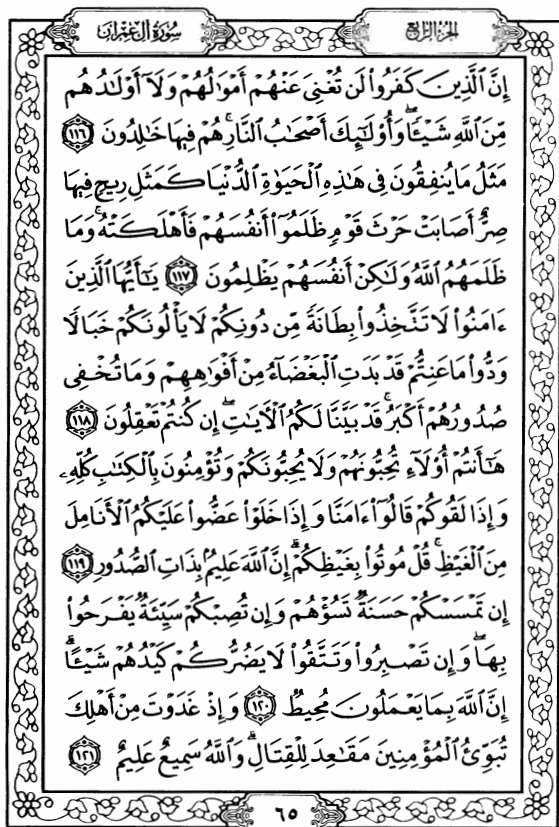 الجزء الرابع
سورة آل عمران
إِنَّ ٱلَّذِينَ كَفَرُوا۟ لَن تُغْنِىَ عَنْهُمْ أَمْوَٰلُهُمْ وَلَآ أَوْلَٰدُهُم
مِّنَ ٱللَّهِ شَيْـًٔا ۖ وَأُو۟لَٰٓئِكَ أَصْحَٰبُ ٱلنَّارِ ۚ هُمْ فِيهَا خَٰلِدُونَ ١١٦
مَثَلُ مَا يُنفِقُونَ فِى هَٰذِهِ ٱلْحَيَوٰةِ ٱلدُّنْيَا كَمَثَلِ رِيحٍ فِيهَا
صِرٌّ أَصَابَتْ حَرْثَ قَوْمٍ ظَلَمُوٓا۟ أَنفُسَهُمْ فَأَهْلَكَتْهُ ۚ وَمَا
ظَلَمَهُمُ ٱللَّهُ وَلَٰكِنْ أَنفُسَهُمْ يَظْلِمُونَ ١١٧ يَٰٓأَيُّهَا ٱلَّذِينَ
ءَامَنُوا۟ لَا تَتَّخِذُوا۟ بِطَانَةً مِّن دُونِكُمْ لَا يَأْلُونَكُمْ خَبَالًا
وَدُّوا۟ مَا عَنِتُّمْ قَدْ بَدَتِ ٱلْبَغْضَآءُ مِنْ أَفْوَٰهِهِمْ وَمَا تُخْفِى
صُدُورُهُمْ أَكْبَرُ ۚ قَدْ بَيَّنَّا لَكُمُ ٱلْءَايَٰتِ ۖ إِن كُنتُمْ تَعْقِلُونَ ١١٨
هَٰٓأَنتُمْ أُو۟لَآءِ تُحِبُّونَهُمْ وَلَا يُحِبُّونَكُمْ وَتُؤْمِنُونَ بِٱلْكِتَٰبِ كُلِّهِۦ
وَإِذَا لَقُوكُمْ قَالُوٓا۟ ءَامَنَّا وَإِذَا خَلَوْا۟ عَضُّوا۟ عَلَيْكُمُ ٱلْأَنَامِلَ
مِنَ ٱلْغَيْظِ ۚ قُلْ مُوتُوا۟ بِغَيْظِكُمْ ۗ إِنَّ ٱللَّهَ عَلِيمٌۢ بِذَاتِ ٱلصُّدُورِ ١١٩
إِن تَمْسَسْكُمْ حَسَنَةٌ تَسُؤْهُمْ وَإِن تُصِبْكُمْ سَيِّئَةٌ يَفْرَحُوا۟
بِهَا ۖ وَإِن تَصْبِرُوا۟ وَتَتَّقُوا۟ لَا يَضُرُّكُمْ كَيْدُهُمْ شَيْـًٔا ۗ
إِنَّ ٱللَّهَ بِمَا يَعْمَلُونَ مُحِيطٌ ١٢٠ وَإِذْ غَدَوْتَ مِنْ أَهْلِكَ
تُبَوِّئُ ٱلْمُؤْمِنِينَ مَقَٰعِدَ لِلْقِتَالِ ۗ وَٱللَّهُ سَمِيعٌ عَلِيمٌ ١٢١
٦٥